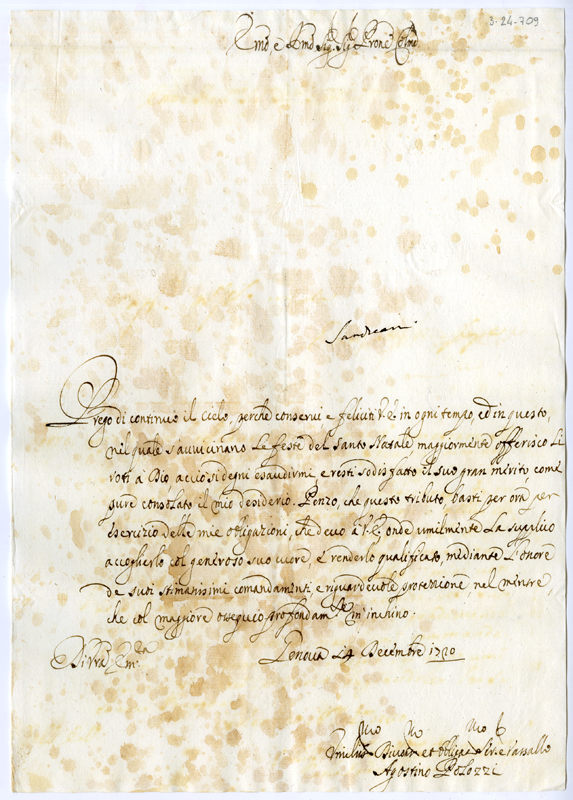 3-24-709
Em̃o, e Rm̃o Sig.r Sig.r Prone Colmo
Prego di continuo il Cielo, perche conserui e feliciti V.E. in ogni tempo, ed in questo,
nel quale s'auuicinano Le feste del Santo Natale maggiormente offerisco Li
voti a Dio acciò si degni esaudirmi e resti sodisfatto il suo gran merito, come
pure consolato il mio desiderio. Penzo, che questo tributo, basti per ora per
esercizio delle mie obligazioni, che deuo a V.E. onde umilmente La supplico
accoglierlo col generoso suo cuore, e renderlo qualificato, mediante L'onore
de suoi stimatissimi comandamenti, e riguardeuole protezzione, nel mentre
che col maggiore ossequio profondam.te m'inchino.
Di V.ra Em.za
Genoua 24 Decembre 1720
Umilis.mo Diuot.mo et Oblig.mo Ser.e e Vassallo
Agostino Polozzi